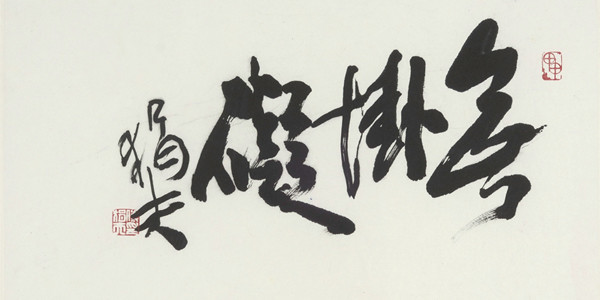 無掛礙
狷夫